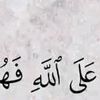 عَلَى ٱللَّهِ فَهُ